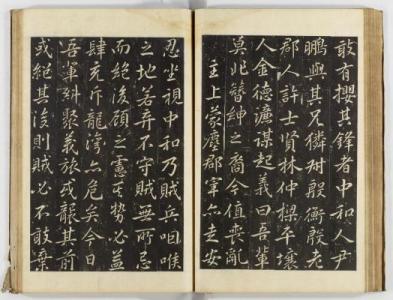 敢有攖其鋒者中和人尹
鵬與其兄獜殷衡殷老
郡人許士賢林仲樑平壤
人金德濂謀起義曰吾輩
莫非簪紳之裔今值喪亂
主上蒙塵郡宰亦走安
忍坐視中和乃賊兵咽喉
之地若弃不守賊無所忌
而絶後顧之其勢必益
肆充斥龍灣亦危矣今日
吾輩糾聚義旅或襲其前
或絕其後則賊必不敢棄